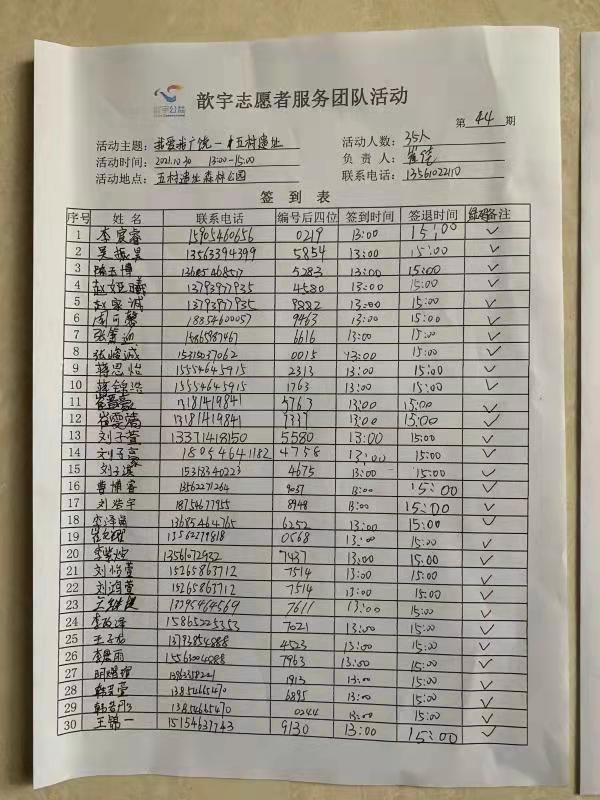 歆宇公益
歆宇志愿者服务团队活动
第 44 期
活动主题: 我爱我广饶一 五村遗址 活动人数: 35人
活动时间: 2021.10.30 13:00-15:00 负 责 人: 崔
活动地点: 五村遗址森林公园 联系电话: 13561022110
签 到 表
序号 姓 名 联系电话 编号后四位 签到时间 签退时间 备注
1 李宸睿 15905460656 0219 13:00 15:00 ✓
2 吴振昊 13563394399 5854 13:00 15:00 ✓
3 陈玉博 13685468517 5283 13:00 15:00 ✓
4 赵娅曦 13793997935 4580 13:00 15:00 ✓
5 赵家诚 13793997935 9882 13:00 15:00 ✓
6 周可馨 18854600057 9463 13:00 15:00 ✓
7 张 15865987467 6616 13:00 15:00 ✓
8 张峰诚 15315037062 0015 13:00 15:00 ✓
9 蒋思怡 15554645915 2313 13:00 15:00 ✓
10 蒋锦浩 15554645915 1763 13:00 15:00 ✓
11 崔 13181419841 5763 13:00 15:00 ✓
12 崔雯 13181419841 9337 13:00 15:00 ✓
13 刘子萱 13371418150 5580 13:00 15:00 ✓
14 刘子豪 18054641182 4758 13:00 15:00 ✓
15 刘子溪 15313340223 4675 13:00 15:00 ✓
16 曹博睿 13562271264 9037 13:00 15:00 ✓
17 刘浩宇 18754677955 8948 13:00 15:00 ✓
18 李泽 13685464765 6252 13:00 15:00 ✓
19 13562279818 0568 13:00 15:00 ✓
20 李 13561072932 7437 13:00 15:00 ✓
21 刘怡萱 15265863712 7514 13:00 15:00 ✓
22 刘鸿萱 15265863712 7514 13:00 15:00 ✓
23 13795464569 7611 13:00 15:00 ✓
24 李 15865225353 7021 13:00 15:00 ✓
25 王子 13793854888 4523 13:00 15:00 ✓
26 李 雨 15563004888 7963 13:00 15:00 ✓
27 1913 13:00 15:00 ✓
28 韩 萱 13854665470 6895 13:00 15:00 ✓
29 韩 13854665470 0244 13:00 15:00 ✓
30 王锦一 15154637743 9130 13:00 15:00 ✓